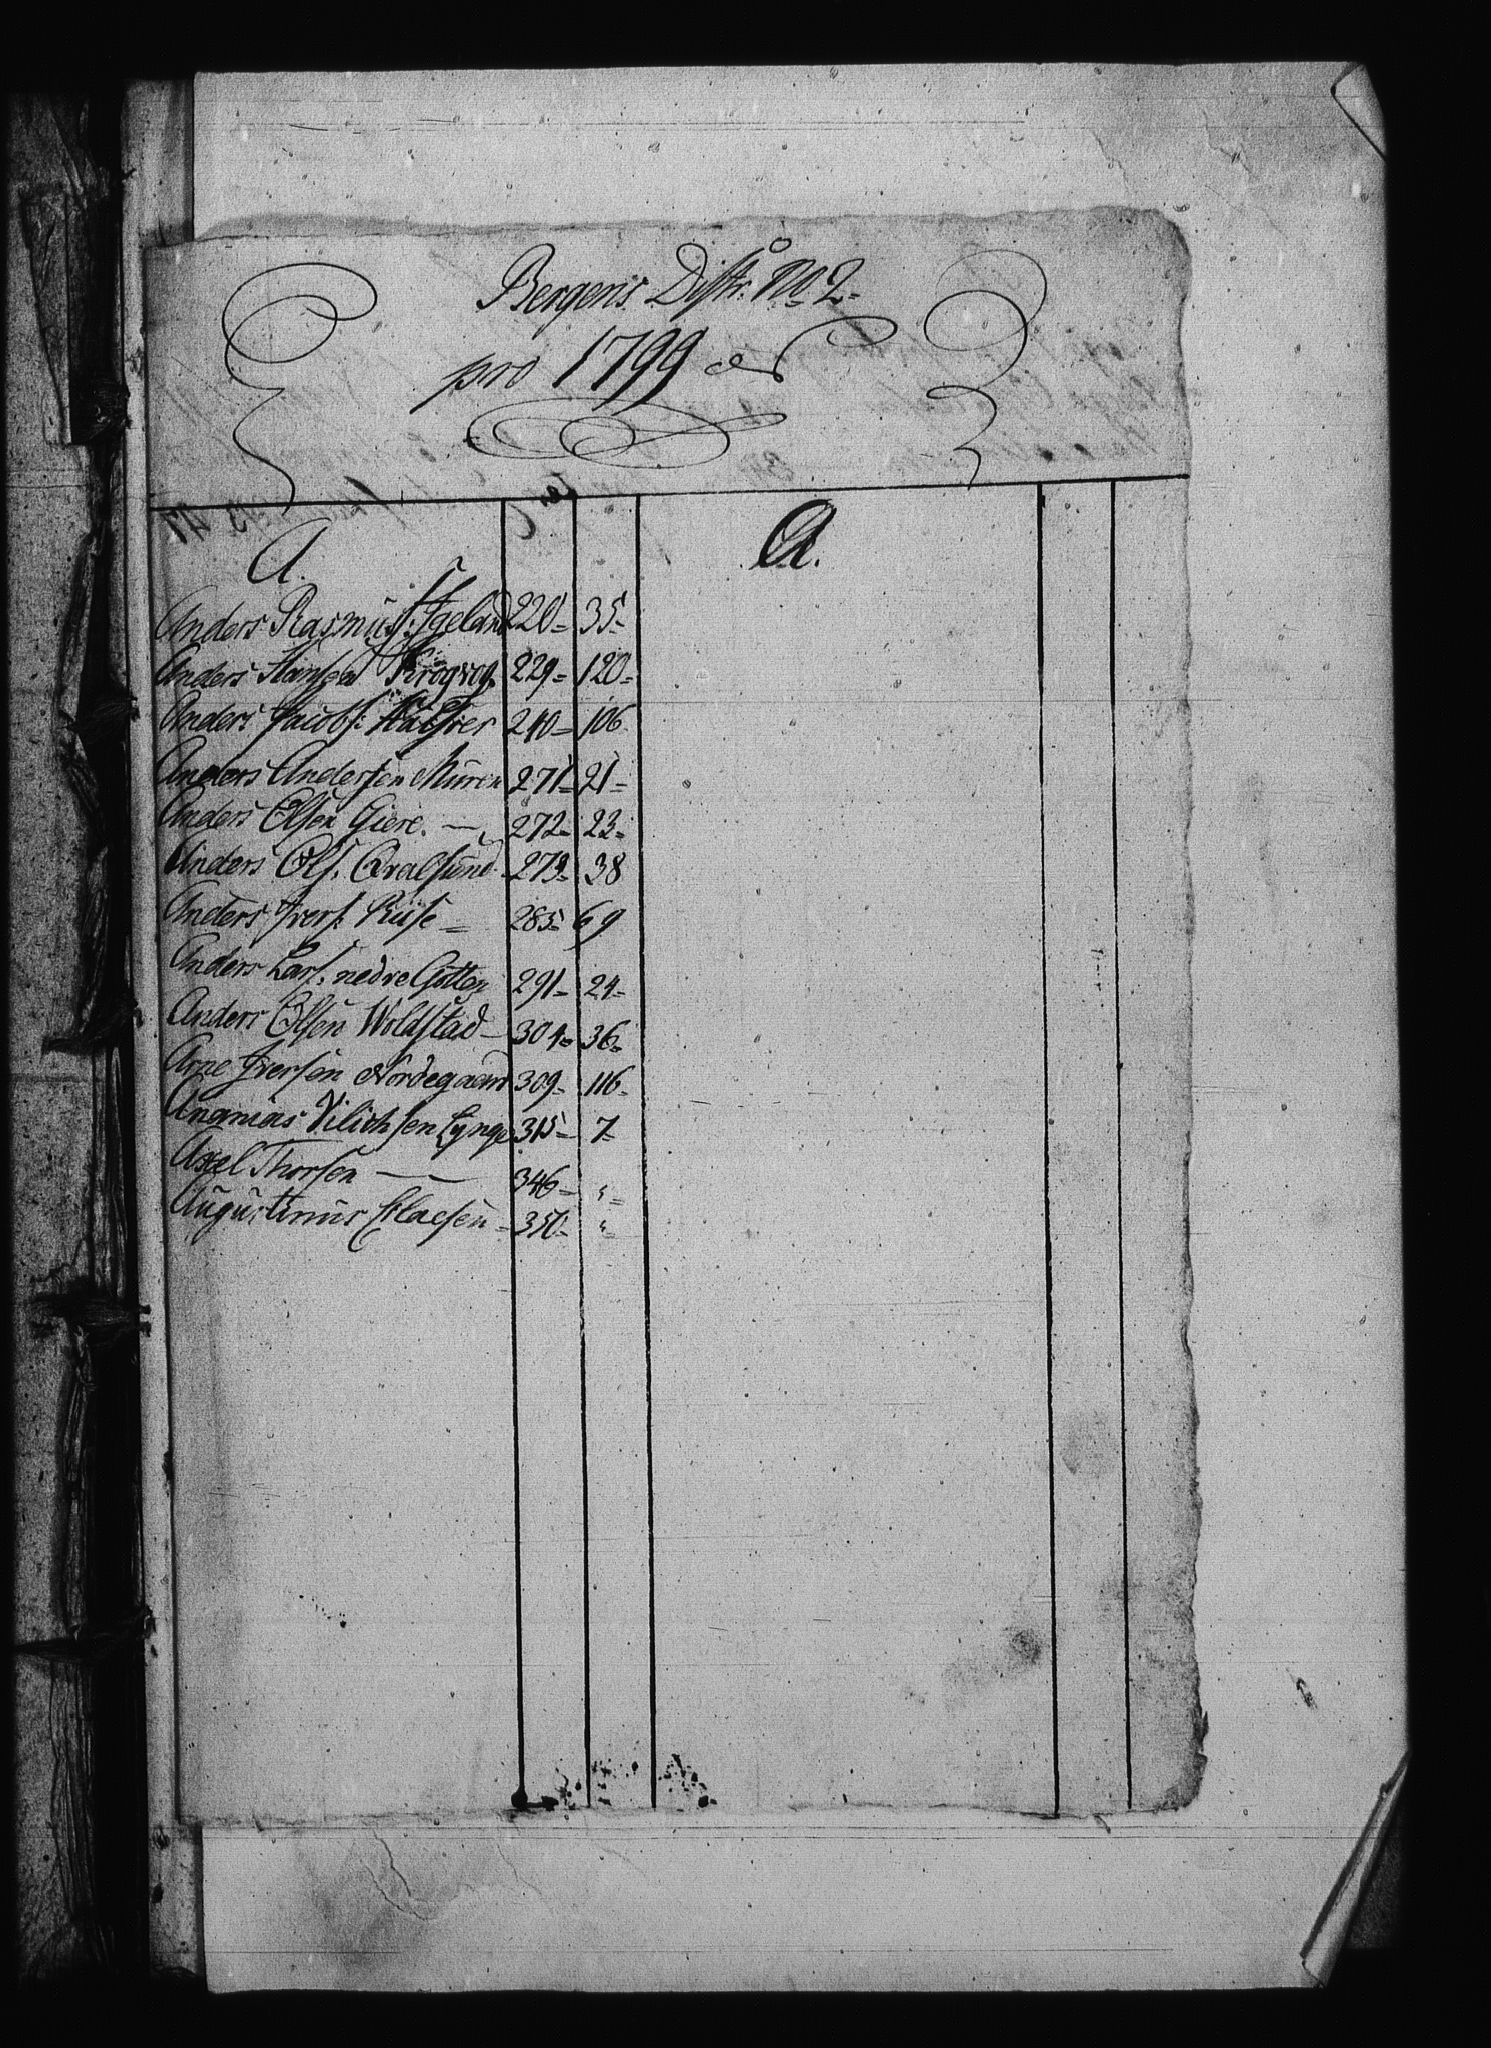 Bergens Distr. No 2-
pro 1799
A. A.
Anders Rasmus: Igeland 220- 35-
Anders Hansen Krogvog 229- 120-
Anders Jacobs: 240- 106
Anders Andersen Muren 271- 21-
Anders Olsen Giere. - 272- 23-
Anders Ols. Qvalsund 279- 38
Anders Ivers: Riise - 285- 69
Anders Lars. nedre Gotten 291- 24-
Anders Olsen Woldstad - 304- 36-
Arne Iversen Nordegaard 309- 116-
Ananias Vilichsen Lynge 315- 7-
Axel Thorsen - 346- "
Augustinus Claesen - 350- "